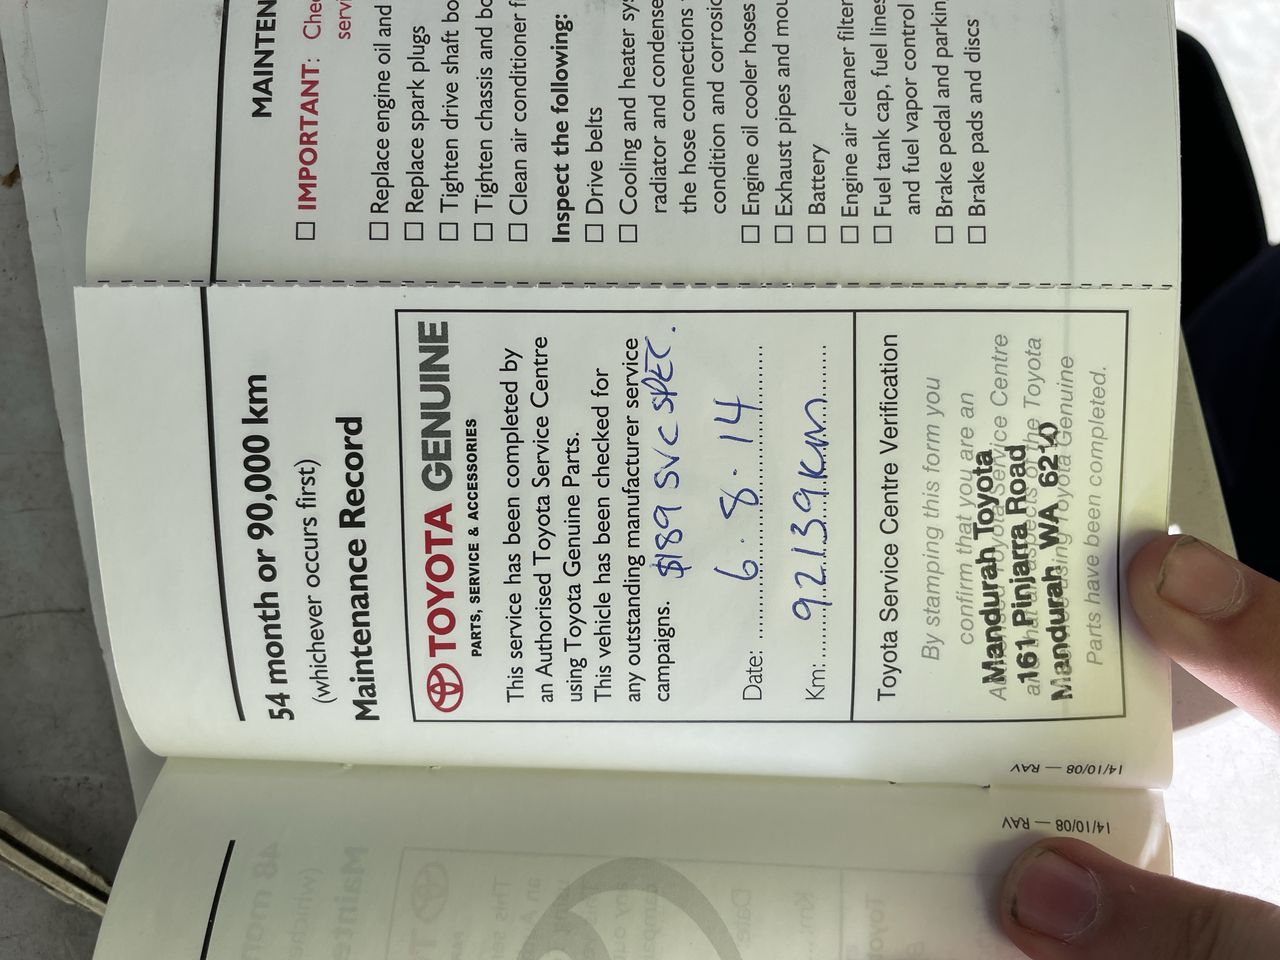 54 month or 90,000 km
(whichever occurs first)
Maintenance Record
TOYOTA GENUINE
PARTS, SERVICE & ACCESSORIES
This service has been completed by
an Authorised Toyota Service Centre
using Toyota Genuine Parts.
This vehicle has been checked for
any outstanding manufacturer service
campaigns. $189 SVC SPEC.
Date: 6.8.14
Km: 92139km
Toyota Service Centre Verification
By stamping this form you
confirm that you are an
Toyota Service Centre
the Toyota
using Toyota Genuine
Parts have been completed.
Mandurah Toyota
161 Pinjarra Road
Mandurah WA 6210
14/10/08 — RAV
14/10/08 — RAV
MAINTEN
IMPORTANT: Chec
servi
Replace engine oil and
Replace spark plugs
Tighten drive shaft bo
Tighten chassis and bo
Clean air conditioner f
Inspect the following:
Drive belts
Cooling and heater sys
radiator and condense
the hose connections
condition and corrosio
Engine oil cooler hoses
Exhaust pipes and mou
Battery
Engine air cleaner filter
Fuel tank cap, fuel lines
and fuel vapor control
Brake pedal and parkin
Brake pads and discs